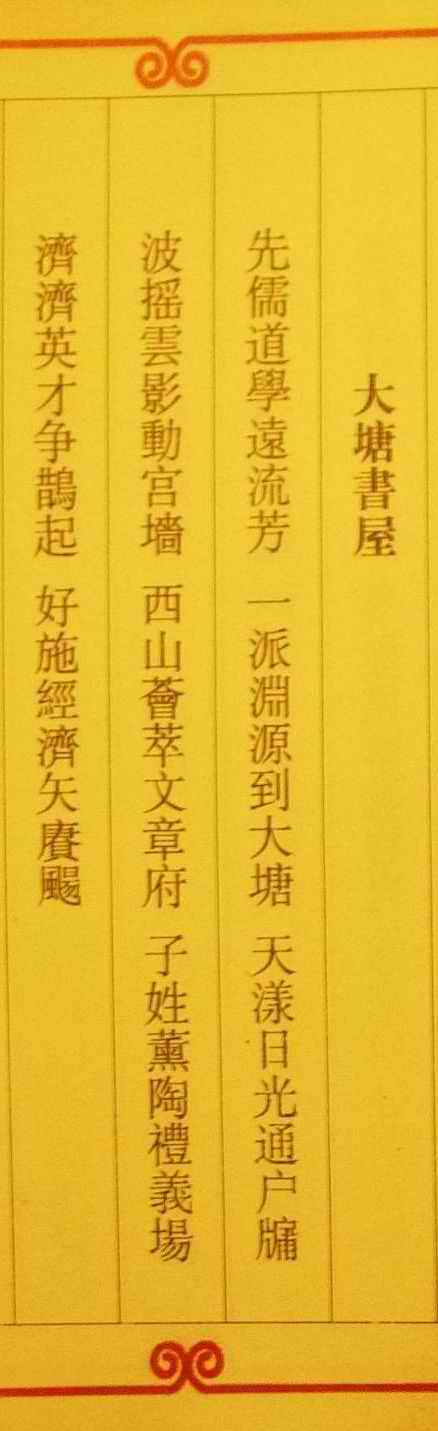 大塘書屋
先儒道學遠流芳 一派淵源到大塘 天漾日光通户牖
波摇雲影動宫墻 西山薈萃文章府 子姓薰陶禮義場
濟濟英才争鵲起 好施經濟矢賡颺